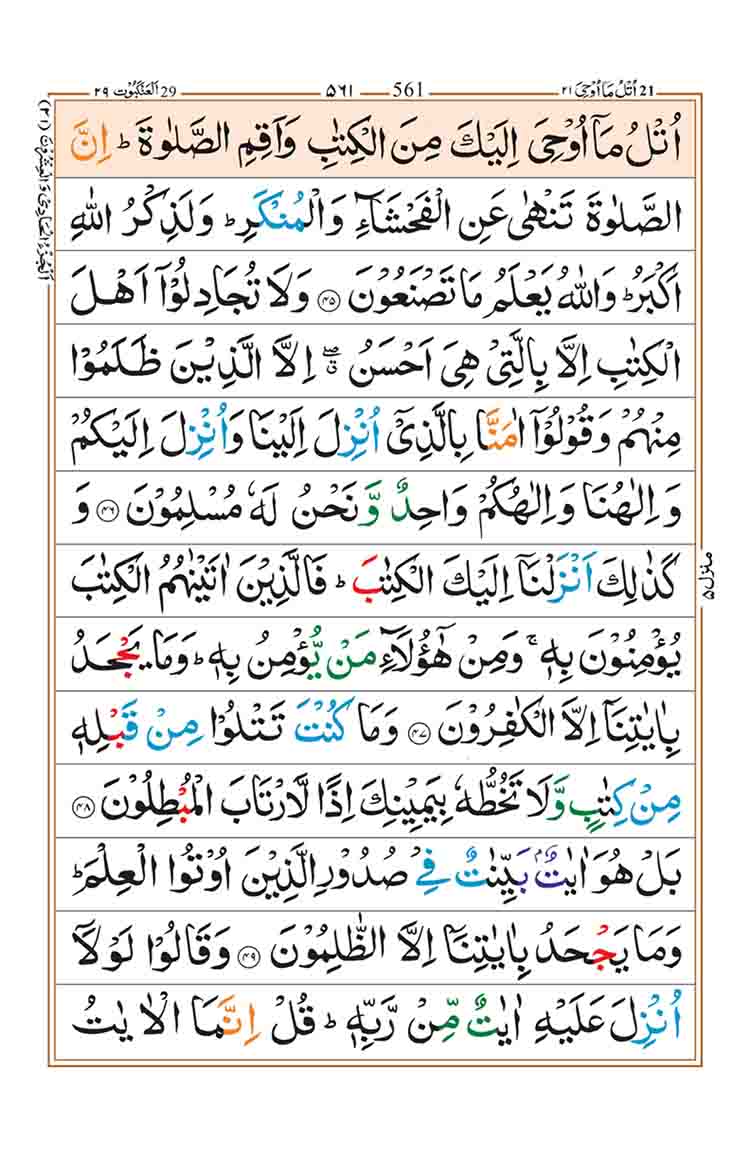 29 اَلْعَنْكَبُوْت ٢٩ — ۵۶۱ — 561 — 21 اُتْلُ مَاۤ اُوْحِیَ ٢١
اُتْلُ مَاۤ اُوْحِیَ اِلَیْكَ مِنَ الْكِتٰبِ وَاَقِمِ الصَّلٰوةَ ؕ اِنَّ
الصَّلٰوةَ تَنْهٰی عَنِ الْفَحْشَآءِ وَالْمُنْكَرِ ؕ وَلَذِكْرُ اللّٰهِ
اَكْبَرُ ؕ وَاللّٰهُ یَعْلَمُ مَا تَصْنَعُوْنَ ﴿۴۵﴾ وَلَا تُجَادِلُوْۤا اَهْلَ
الْكِتٰبِ اِلَّا بِالَّتِیْ هِیَ اَحْسَنُ ۖۗ اِلَّا الَّذِیْنَ ظَلَمُوْا
مِنْهُمْ وَقُوْلُوْۤا اٰمَنَّا بِالَّذِیْۤ اُنْزِلَ اِلَیْنَا وَاُنْزِلَ اِلَیْكُمْ
وَ اِلٰهُنَا وَ اِلٰهُكُمْ وَاحِدٌ وَّ نَحْنُ لَهٗ مُسْلِمُوْنَ ﴿۴۶﴾ وَ
كَذٰلِكَ اَنْزَلْنَاۤ اِلَیْكَ الْكِتٰبَ ؕ فَالَّذِیْنَ اٰتَیْنٰهُمُ الْكِتٰبَ
یُؤْمِنُوْنَ بِهٖ ۚ وَمِنْ هٰۤؤُلَآءِ مَنْ یُّؤْمِنُ بِهٖ ؕ وَمَا یَجْحَدُ
بِاٰیٰتِنَاۤ اِلَّا الْكٰفِرُوْنَ ﴿۴۷﴾ وَمَا كُنْتَ تَتْلُوْا مِنْ قَبْلِهٖ
مِنْ كِتٰبٍ وَّلَا تَخُطُّهٗ بِیَمِیْنِكَ اِذًا لَّارْتَابَ الْمُبْطِلُوْنَ ﴿۴۸﴾
بَلْ هُوَ اٰیٰتٌۢ بَیِّنٰتٌ فِیْ صُدُوْرِ الَّذِیْنَ اُوْتُوا الْعِلْمَ ؕ
وَمَا یَجْحَدُ بِاٰیٰتِنَاۤ اِلَّا الظّٰلِمُوْنَ ﴿۴۹﴾ وَقَالُوْا لَوْلَاۤ
اُنْزِلَ عَلَیْهِ اٰیٰتٌ مِّنْ رَّبِّهٖ ؕ قُلْ اِنَّمَا الْاٰیٰتُ
اَلْجُزْءُ الْحَادِیْ وَ الْعِشْرُوْنَ (٢١)
منزل ۵